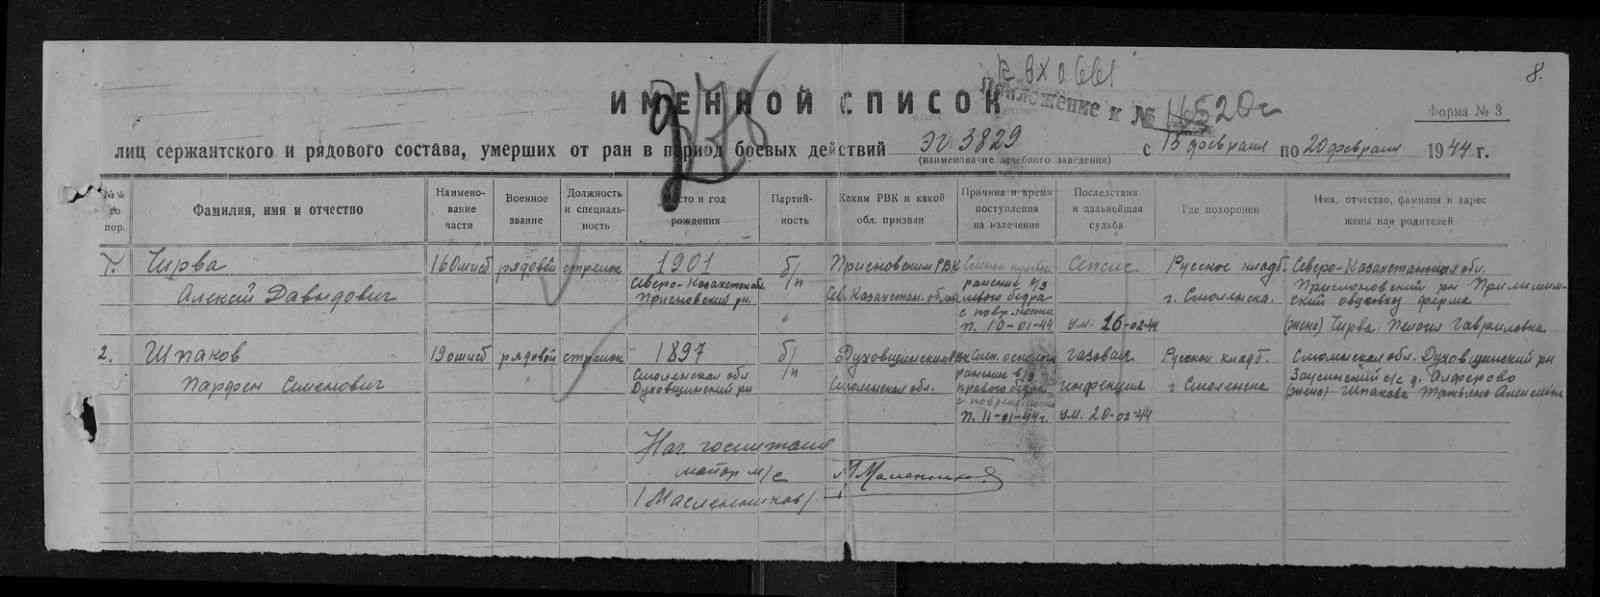 к вх 0661
8.
ИМЕННОЙ СПИСОК
Приложение к №
20г
Форма № 3
лиц сержантского и рядового состава, умерших от ран в период боевых действий ЭГ 3829 с 15 февраля по 20 февраля 1944 г.
(наименование лечебного заведения)
№№ по пор.
Фамилия, имя и отчество
Наименование части
Военное звание
Должность и специальность
Место и год рождения
Партийность
Каким РВК и какой обл. призван
Причина и время поступления на излечение
Последствия и дальнейшая судьба
Где похоронен
Имя, отчество, фамилия и адрес жены или родителей
1. Чирва
Алексей Давыдович
160 мисб
рядовой
стрелок
1901
Северо-Казахстан обл
Присновский рн.
б/п
Присновским РВК
Сев. Казахстан. обл.
ранение
левого бедра
п. 10-01-44
Сепсис
ум. 16-02-44
Русское кладб.
г. Смоленска.
Северо-Казахстанская обл.
(жена) Чирва Гавриловна
2. Шпаков
Парфен Семенович
190 мисб
рядовой
стрелок
1897
Смоленская обл
Духовщинский рн
б/п
Духовщинским РВК
Смоленская обл.
ранение
правого бедра
п. 11-01-44г.
газовая
инфекция
ум. 20-02-44
Русское кладб.
г Смоленска
Смоленская обл. Духовщинский рн
с/с д. Алферово
(жена) Шпакова Татьяна
Нач. госпиталя
майор м/с
/Масленников/